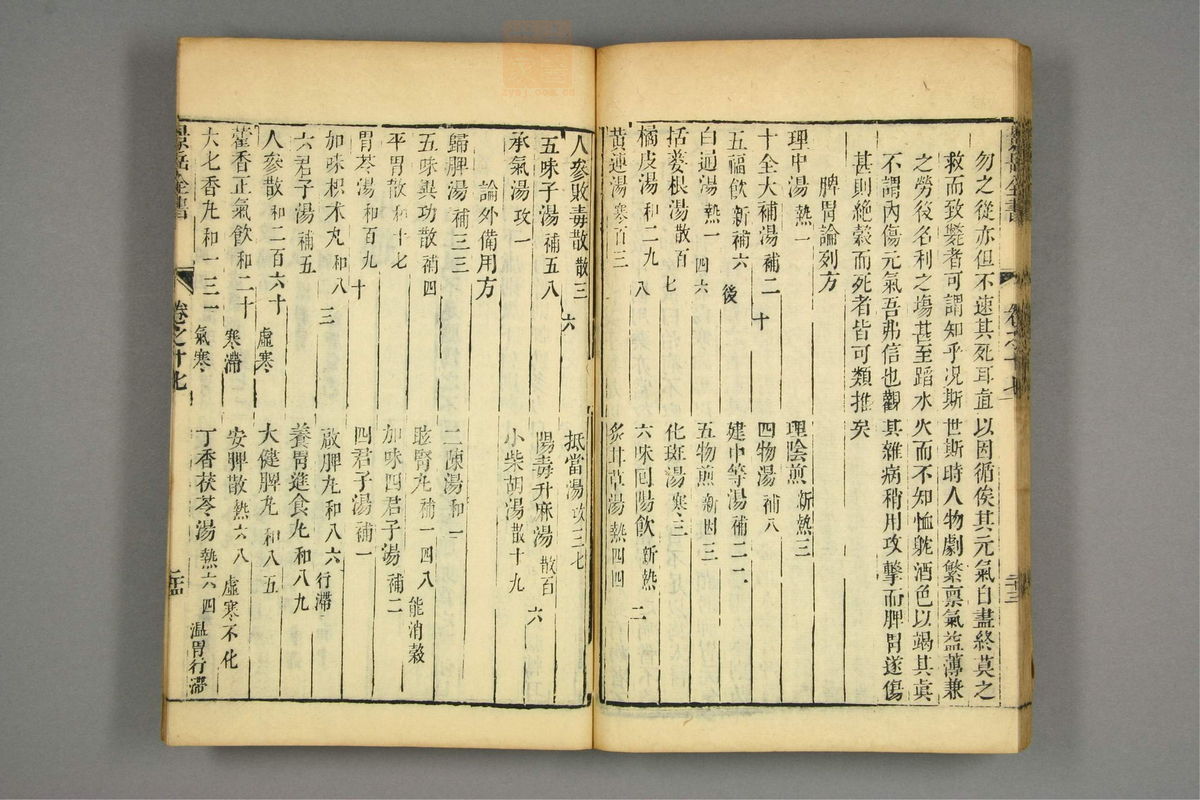 景岳全書
卷之十七
二十三
勿之從亦但不速其死耳直以因循俟其元氣自盡終莫之
救而致斃者可謂知乎况斯世斯時人物劇繁禀氣益薄兼
之勞役名利之塲甚至蹈水火而不知恤躭酒色以竭其眞
不謂內傷元氣吾弗信也觀其雜病稍用攻擊而脾胃遂傷
甚則絶穀而死者皆可類推矣
脾胃論列方
理中湯 熱一
理陰煎 新熱三
十全大補湯 補二十
四物湯 補八
五福飲 新補六
建中等湯 補二二
白通湯 熱一四六
後五物煎 新因三
括蔞根湯 散百七
化斑湯 寒三
橘皮湯 和二九八
六味回陽飲 新熱二
黃連湯 寒百三
炙甘草湯 熱四四
人參敗毒散 散三六
抵當湯 攻三七
五味子湯 補五八
陽毒升麻湯 散百六
承氣湯 攻一
小柴胡湯 散十九
論外備用方
歸脾湯 補三三
二陳湯 和一
五味異功散 補四
駭腎丸 補一四八 能消穀
平胃散 和十七
加味四君子湯 補二
胃苓湯 和百九十
四君子湯 補一
加味枳术丸 和八三
啟脾丸 和八六 行滯
六君子湯 補五
養胃進食丸 和八九
人參散 和二百六十 虛寒
大健脾丸 和八五
藿香正氣飲 和二十 寒滯
安脾散 熱六八 虛寒不化
大七香丸 和一三一 氣寒
丁香茯苓湯 熱六四 温胃行滯
景岳全書
卷之十七
二十四